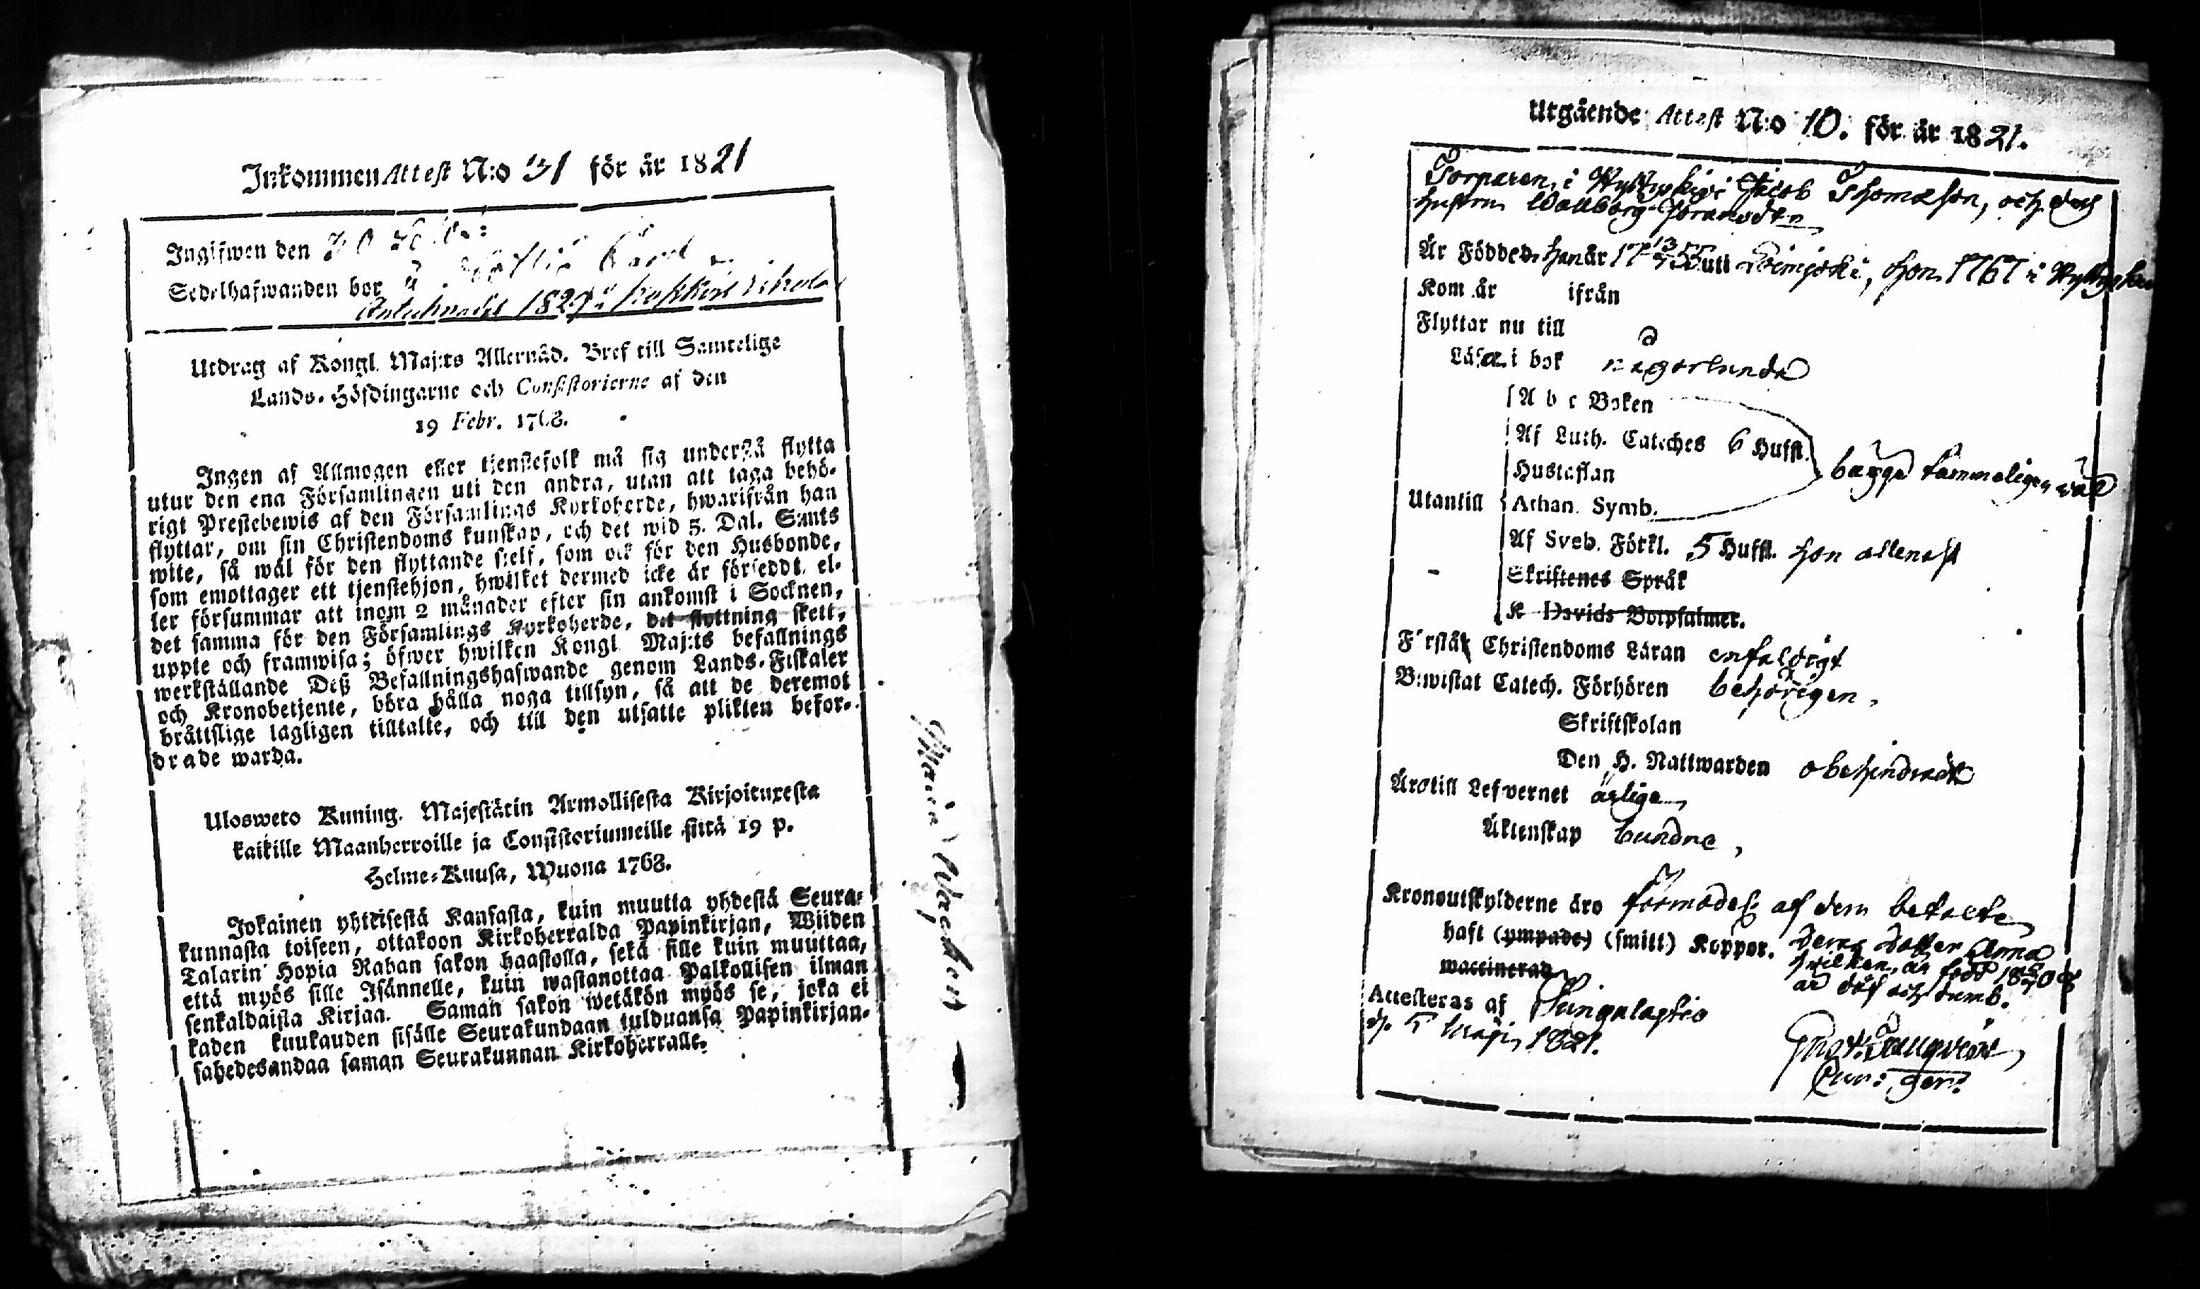 Inkommen Attest N:o 31 för år 1821
Ingifwen den 30
Sedelhafwanden bor
Antecknadt 1829
Utdrag af Kongl. Maj:ts Allernåd. Bref till Samtelige
Lands-Höfdingarne och Consistorierne af den
19 Febr. 1768.
Ingen af Allmogen eller tjenstefolk må sig understå flytta
utur den ena Församlingen uti den andra, utan att taga behö-
rigt Prestebewis af den Församlings Kyrkoherde, hwarifrån han
flyttar, om sin Christendoms kunskap, och det wid 5. Dal. S:mts
wite, så wäl för den flyttande sielf, som ock för den Husbonde,
som emottager ett tjenstehjon, hwilket dermed icke är försedt, el-
ler försummar att inom 2 månader efter sin ankomst i Socknen,
det samma för den Församlings Kyrkoherde, det flyttning skett,
uppte och framwisa; öfwer hwilken Kongl Maj:ts befallnings
werkställande Deß Befallningshafwande genom Lands-Fiskaler
och Kronobetjente, böra hålla noga tillsyn, så att de deremot
bråttslige lagligen tilltalte, och till den utsatte plikten befor-
drade warda.
Ulosweto Kuning. Majestätin Armollisesta Kirjoituxesta
kaikille Maanherroille ja Consistoriumeille siitä 19 p.
Helme-Kuusa, Wuona 1768.
Jokainen yhteisestä Kansasta, kuin muutta yhdestä Seura-
kunnasta toiseen, ottakoon Kirkoherralda Papinkirjan, Wiiden
Talarin Hopia Rahan sakon haastolla, sekä sille kuin muuttaa,
että myös sille Isännelle, kuin wastanottaa Palkollisen ilman
senkaldaista Kirjaa. Saman sakon wetäkön myös se, joka ei
kaden kuukauden sisälle Seurakundaan tulduansa Papinkirjan-
sahedesandaa saman Seurakunnan Kirkoherralle.
Maria
Utgående Attest N:o 10. för år 1821.
Torparen i Jacob Thomasson, och dess
hustru Wallborg
Är Födde han år 17 uti Loimjoki, hon 1767 i
Kom år ifrån
Flyttar nu till
Läsa i bok någorlunda
A b c Boken
Af Luth. Cateches 6 Hufst.
Hustaflan
bägge tämmeligen väl
Utantill Athan. Symb.
Af Sveb. Förkl. 5 Hufst. hon allenast
Skriftenes Språk
K Davids Botpsalmer.
Förstå Christendoms Läran enfaldigt
Bewistat Catech. Förhören behörigen,
Skriftskolan
Den H. Nattwarden obehindradt
Äro till Lefvernet ärlige,
Äktenskap bundne,
Kronoutskylderne äro förmodel. af dem betalte
haft (ympade) (smitt) Koppor. Deras dotter Anna
waccinerad hvilken är född
är döf och dumb.
Attesteras af Pungalaitio
d. 5 Maji, 1821.